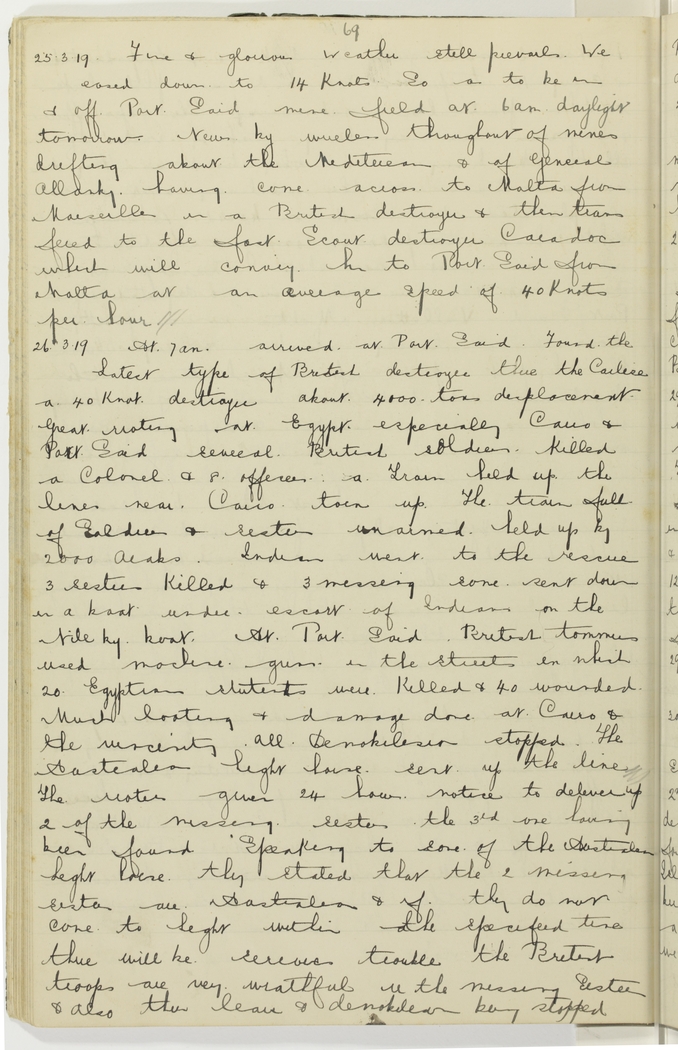 69
25.3.19 Fine & glorious weather still prevails. We
eased down to 14 Knots. So as to be in
& off Port Said mine field at 6 am daylight
tomorrow. News by wireless throughout of mines
drifting about the Mediterean & of General
Allanby. having come across to Malta from
Marseilles in a British destroyer & then trans
fered to the fast Scout destroyer Caradoc
which will convey him to Port Said from
Malta at an average speed of 40 Knots
per hour ///
26.3.19 At 7 am. arrived at Port Said. Found the
latest type of British destroyer there the
a 40 Knot destroyer about 4000 tons displacement.
Great rioting at Egypt especially Cairo &
Port Said several British soldiers Killed
a Colonel & 8 officers: a Train held up the
lines near Cairo torn up. The train full
of Soldiers & sisters unarmed held up by
2000 Arabs. Indians went to the rescue
3 sisters Killed & 3 missing some sent down
in a boat under escort of Indians on the
Nile by boat. At Port Said British tommies
used machine guns in the streets in which
20 Egyptian students were Killed & 40 wounded.
Much looting & damage done at Cairo &
the vincinity all Demobilesion stopped. The
Australian light horse sent up the lines
The rioters given 24 hours notice to deliver up
2 of the missing sisters the 3rd one having
been found Speaking to some of the Australian
light horse they stated that the 2 missing
sisters are Australian & if they do not
come to light within the specified time
there will be serious trouble the British
troops are very wrathful in the missing Sisters
& also their leave & demobilesion being stopped